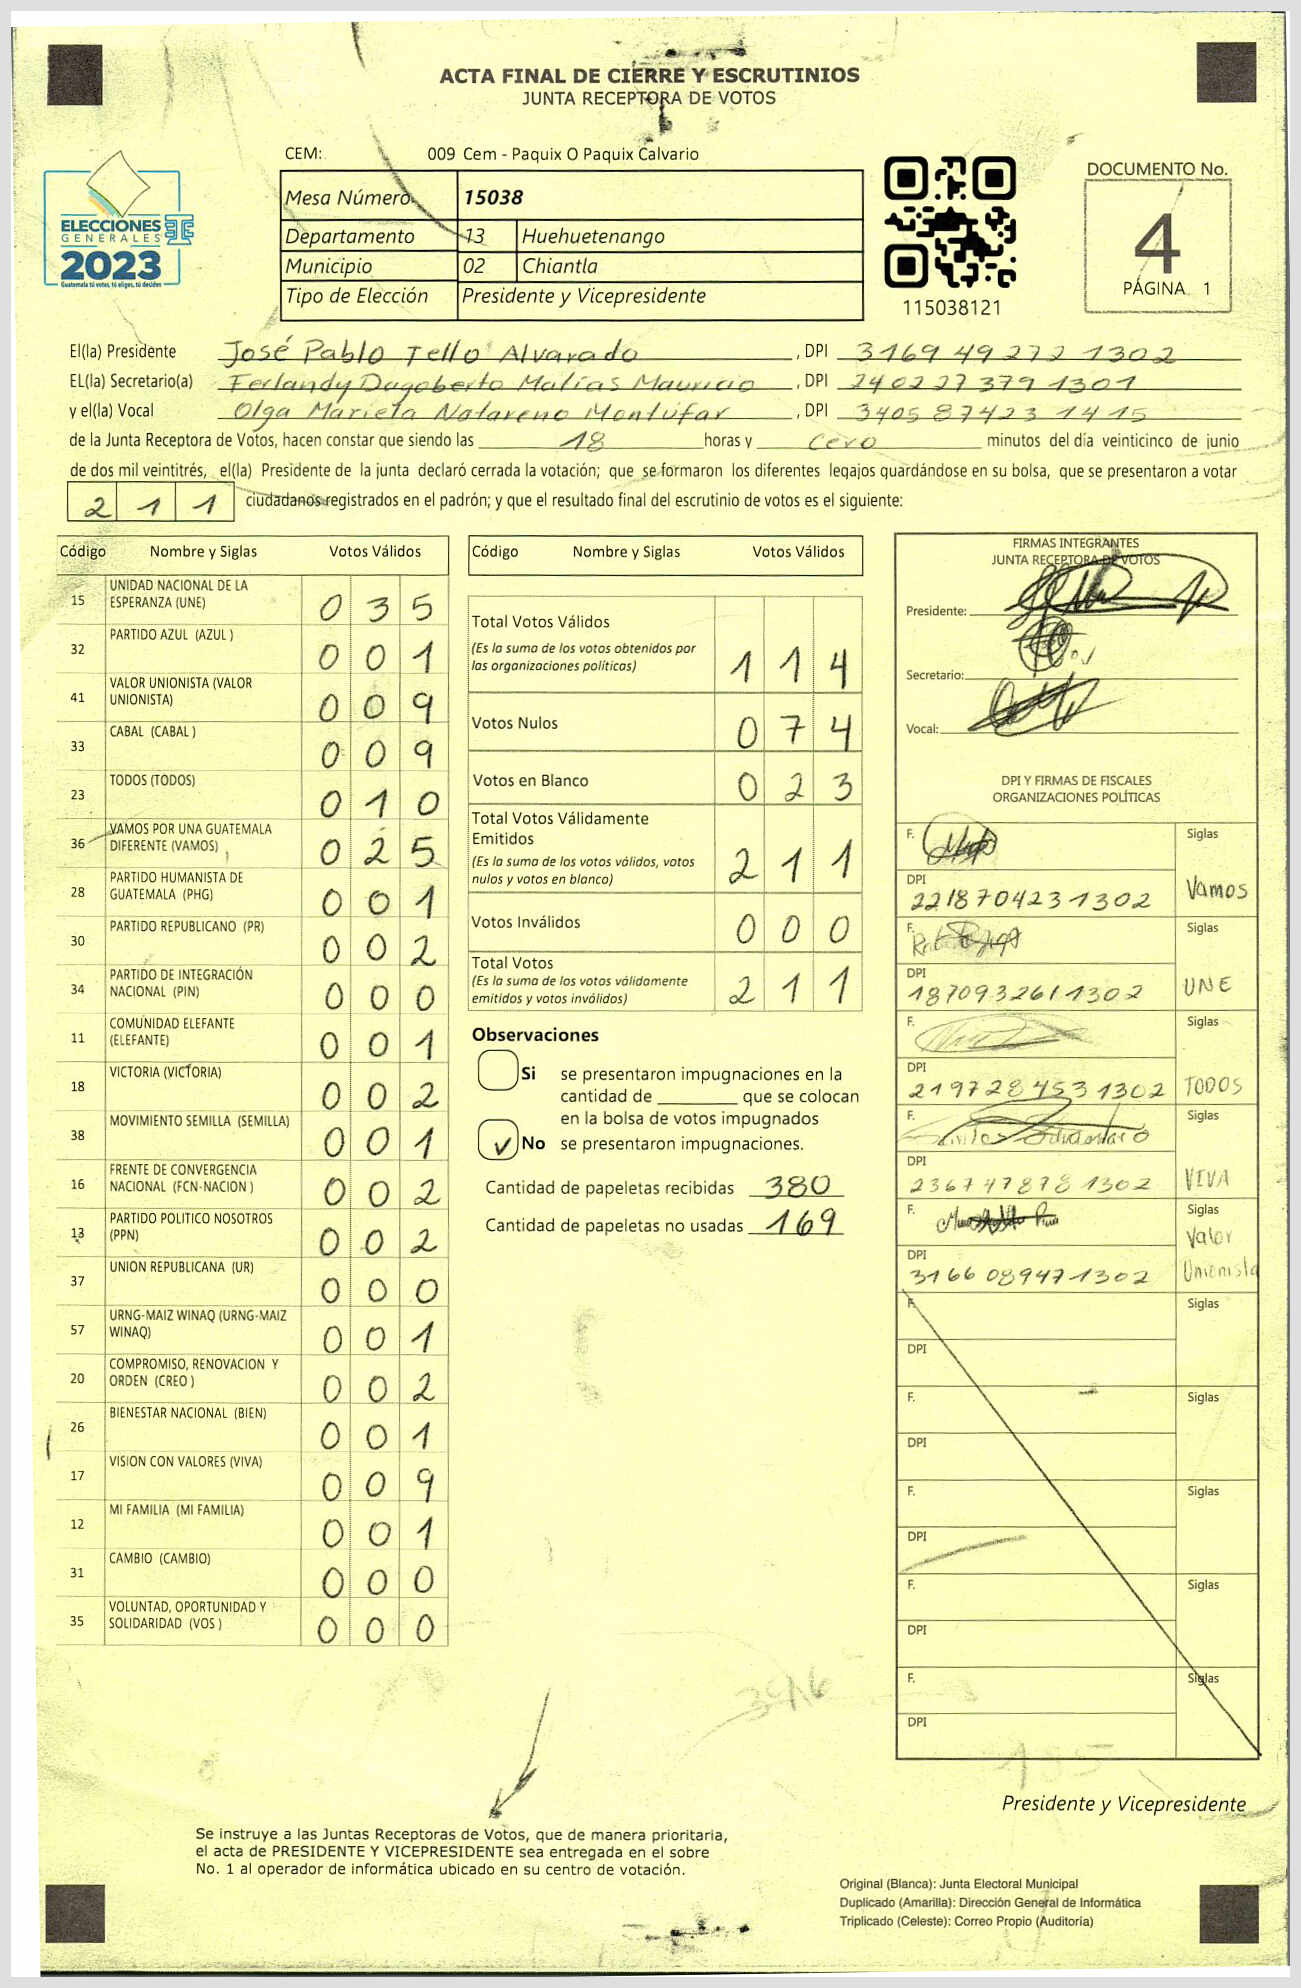 ACTA FINAL DE CIERRE Y ESCRUTINIOS
JUNTA RECEPTORA DE VOTOS
CEM: 009 Cem - Paquix O Paquix Calvario
ELECCIONES
GENERALES
2023
Guatemala tú votas, tú eliges, tú decides
Mesa Número 15038
Departamento 13 Huehuetenango
Municipio 02 Chiantla
Tipo de Elección Presidente y Vicepresidente
115038121
DOCUMENTO No.
4
PÁGINA 1
El(la) Presidente José Pablo Tello Alvarado , DPI 3169 49272 1302
EL(la) Secretario(a) Ferlandy Dagoberto Matías Mauricio , DPI 2402273791301
y el(la) Vocal Olga Marieta Natareno Montúfar , DPI 3405874231415
de la Junta Receptora de Votos, hacen constar que siendo las 18 horas y cero minutos del día veinticinco de junio
de dos mil veintitrés, el(la) Presidente de la junta declaró cerrada la votación; que se formaron los diferentes legajos quardándose en su bolsa, que se presentaron a votar
2 1 1 ciudadanos registrados en el padrón; y que el resultado final del escrutinio de votos es el siguiente:
Código Nombre y Siglas Votos Válidos
15 UNIDAD NACIONAL DE LA
ESPERANZA (UNE) 0 3 5
32 PARTIDO AZUL (AZUL ) 0 0 1
41 VALOR UNIONISTA (VALOR
UNIONISTA) 0 0 9
33 CABAL (CABAL ) 0 0 9
23 TODOS (TODOS) 0 1 0
36 VAMOS POR UNA GUATEMALA
DIFERENTE (VAMOS) 0 2 5
28 PARTIDO HUMANISTA DE
GUATEMALA (PHG) 0 0 1
30 PARTIDO REPUBLICANO (PR) 0 0 2
34 PARTIDO DE INTEGRACIÓN
NACIONAL (PIN) 0 0 0
11 COMUNIDAD ELEFANTE
(ELEFANTE) 0 0 1
18 VICTORIA (VICTORIA) 0 0 2
38 MOVIMIENTO SEMILLA (SEMILLA) 0 0 1
16 FRENTE DE CONVERGENCIA
NACIONAL (FCN-NACION ) 0 0 2
13 PARTIDO POLITICO NOSOTROS
(PPN) 0 0 2
37 UNION REPUBLICANA (UR) 0 0 0
57 URNG-MAIZ WINAQ (URNG-MAIZ
WINAQ) 0 0 1
20 COMPROMISO, RENOVACION Y
ORDEN (CREO ) 0 0 2
26 BIENESTAR NACIONAL (BIEN) 0 0 1
17 VISION CON VALORES (VIVA) 0 0 9
12 MI FAMILIA (MI FAMILIA) 0 0 1
31 CAMBIO (CAMBIO) 0 0 0
35 VOLUNTAD, OPORTUNIDAD Y
SOLIDARIDAD (VOS ) 0 0 0
Código Nombre y Siglas Votos Válidos
Total Votos Válidos
(Es la suma de los votos obtenidos por
las organizaciones políticas) 1 1 4
Votos Nulos 0 7 4
Votos en Blanco 0 2 3
Total Votos Válidamente
Emitidos
(Es la suma de los votos válidos, votos
nulos y votos en blanco) 2 1 1
Votos Inválidos 0 0 0
Total Votos
(Es la suma de los votos válidamente
emitidos y votos inválidos) 2 1 1
Observaciones
Si se presentaron impugnaciones en la
cantidad de ________ que se colocan
en la bolsa de votos impugnados
No se presentaron impugnaciones.
Cantidad de papeletas recibidas 380
Cantidad de papeletas no usadas 169
FIRMAS INTEGRANTES
JUNTA RECEPTORA DE VOTOS
Presidente:
Secretario:
Vocal:
DPI Y FIRMAS DE FISCALES
ORGANIZACIONES POLÍTICAS
F. Siglas
DPI Vamos
2218704231302
F. Siglas
DPI UNE
1870932611302
F. Siglas
DPI TODOS
2197284531302
F. Siglas
DPI VIVA
2367478781302
F. Siglas
Valor
DPI Unionista
3166089471302
F. Siglas
DPI
F. Siglas
DPI
F. Siglas
DPI
F. Siglas
DPI
F. Siglas
DPI
Presidente y Vicepresidente
Se instruye a las Juntas Receptoras de Votos, que de manera prioritaria,
el acta de PRESIDENTE Y VICEPRESIDENTE sea entregada en el sobre
No. 1 al operador de informática ubicado en su centro de votación.
Original (Blanca): Junta Electoral Municipal
Duplicado (Amarilla): Dirección General de Informática
Triplicado (Celeste): Correo Propio (Auditoría)